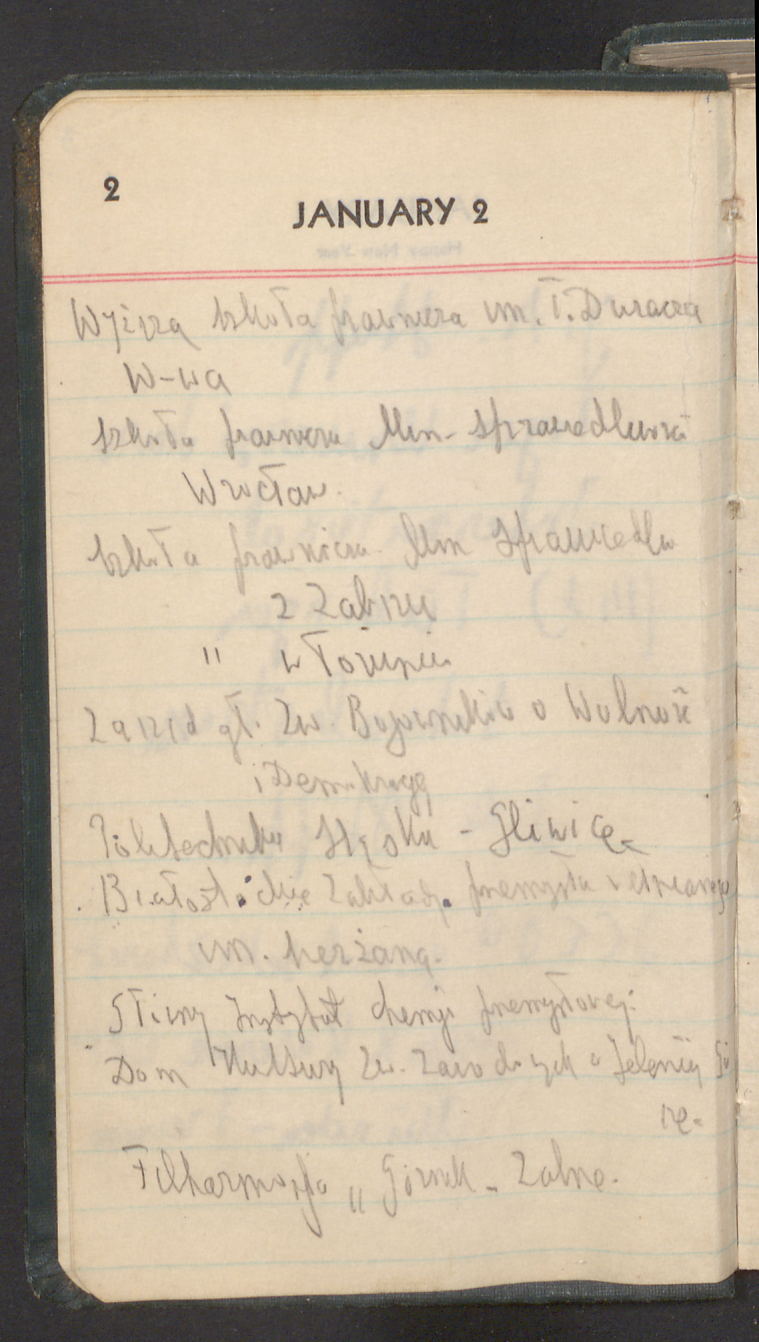 2
JANUARY 2
Wyższa Szkoła prawnicza im. T. Duracza
W-wa
Szkoła prawnicza Min. Sprawiedliwości
Wrocław.
Szkoła prawnicza Min Sprawiedliw
z Zabrzu
" w Toruniu
Zarząd gł. Zw. Bojowników o Wolność
i Demokrację
Politechnika Śląska - Gliwice
Białostockie Zakłady przemysłu wełnianego
im. Sierżana.
Główny Instytut chemji przemysłowej.
Dom Kultury Zw. Zawodowych w Jeleniej Gó
rze.
Filharmonja „ Górnik - Zabrze.